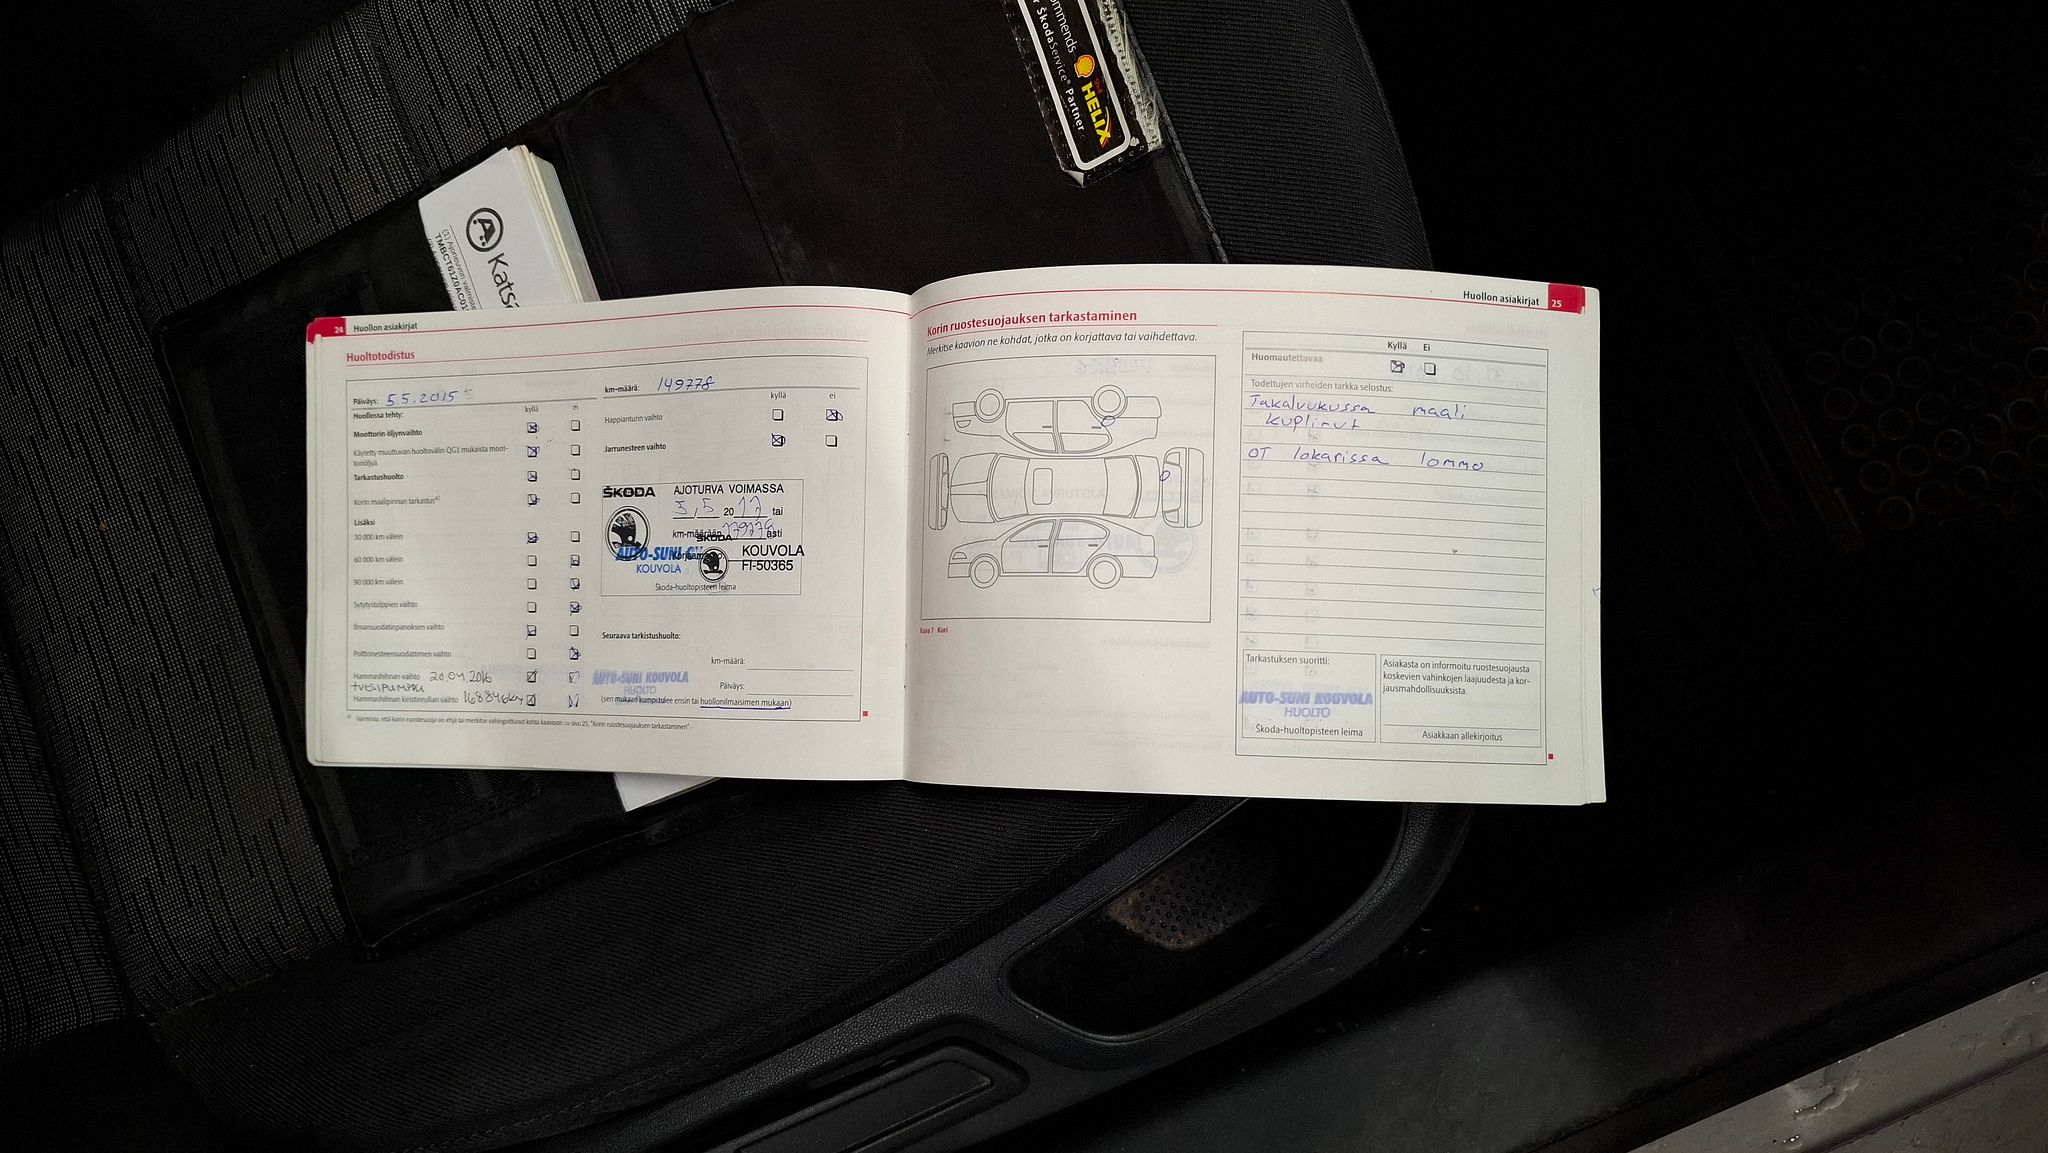 ommends
ŠkodaService® Partner
Shell
HELIX
Katsa
(1) Ajoneuvon valmiste
TMBCT61Z0AC01
24 Huollon asiakirjat
Huoltotodistus
Päiväys: 5.5.2015
Huollossa tehty:
kyllä ei
Moottorin öljynvaihto
Käytetty muuttuvan huoltovälin QG1 mukaista moot-
toriöljyä
Tarkastushuolto
Korin maalipinnan tarkastus a)
Lisäksi
30 000 km välein
60 000 km välein
90 000 km välein
Sytytystulppien vaihto
Ilmansuodatinpanoksen vaihto
Polttonesteensuodattimen vaihto
Hammashihnan vaihto 20.04.2016
+vesipumppu
Hammashihnan kiristinrullan vaihto 168846km
km-määrä: 149778
kyllä ei
Happianturin vaihto
Jarrunesteen vaihto
ŠKODA
AJOTURVA VOIMASSA
5,5 2017 tai
km-määrään 179778 asti
ŠKODA
AUTO-SUNI OY
KOUVOLA
KOUVOLA
FI-50365
Škoda-huoltopisteen leima
Seuraava tarkistushuolto:
km-määrä:
Päiväys:
AUTO-SUNI KOUVOLA
HUOLTO
(sen mukaan kumpi tulee ensin tai huollonilmaisimen mukaan)
a) Varmista, että korin ruostesuoja on ehjä tai merkitse vahingoittunut kohta kaavioon ⇒ sivu 25, "Korin ruostesuojauksen tarkastaminen"
Huollon asiakirjat 25
Korin ruostesuojauksen tarkastaminen
Merkitse kaavion ne kohdat, jotka on korjattava tai vaihdettava.
Kuva 7 Kori
Kyllä Ei
Huomautettavaa
Todettujen virheiden tarkka selostus:
Takalvukussa maali
kuplinut
OT lokarissa lommo
Tarkastuksen suoritti:
AUTO-SUNI KOUVOLA
HUOLTO
Škoda-huoltopisteen leima
Asiakasta on informoitu ruostesuojausta
koskevien vahinkojen laajuudesta ja kor-
jausmahdollisuuksista.
Asiakkaan allekirjoitus